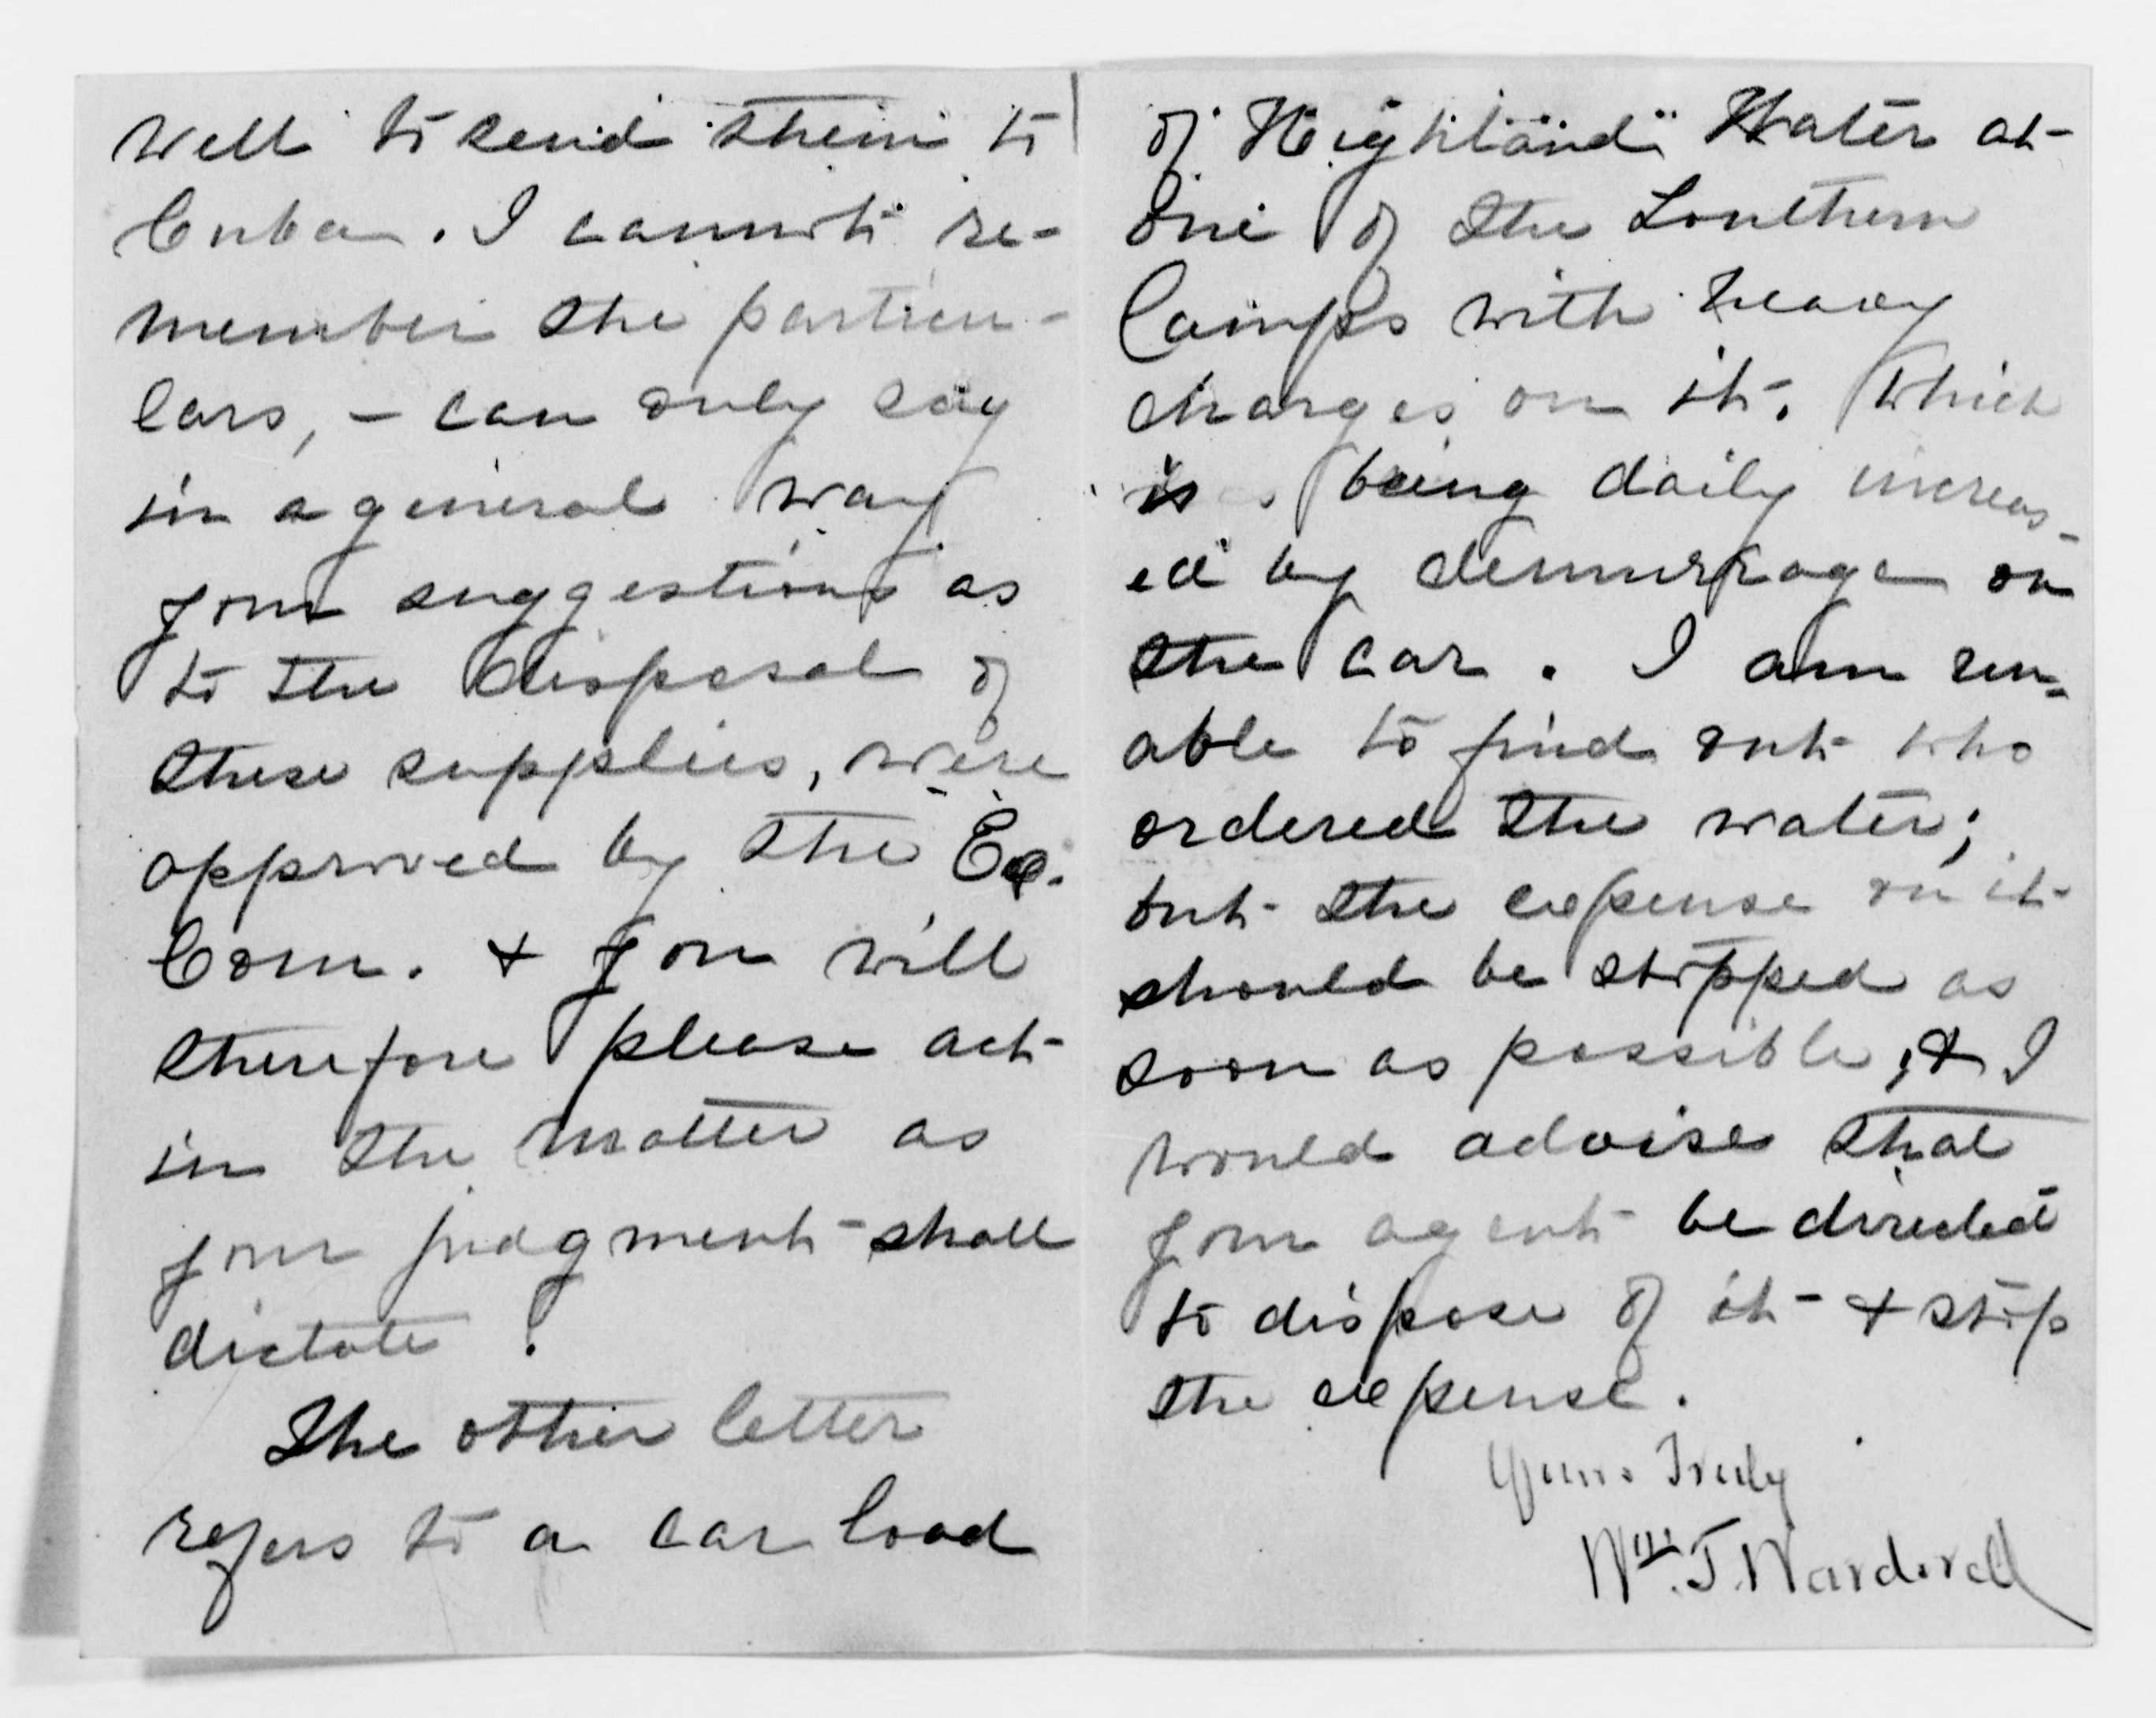 well to send them to
Cuba. I cannot re-
member the particu-
lars, - can only say
in a general way
your suggestions as
to the disposal of
these supplies, were
approved by the Ex.
Com. & you will
therefore please act
in the matter as
your judgment shall
dictate.
The other letter
refers to a car load
of "Highland" Water at
one of the Southern
Camps with heavy
charges on it. Which
is being daily increas-
ed by demurrage on
the car. I am un-
able to find out who
ordered the water;
but the expense on it
should be stopped as
soon as possible, & I
would advise that
your agent be directed
to dispose of it & stop
the expense.
Yours Truly
Wm. T. Wardwell